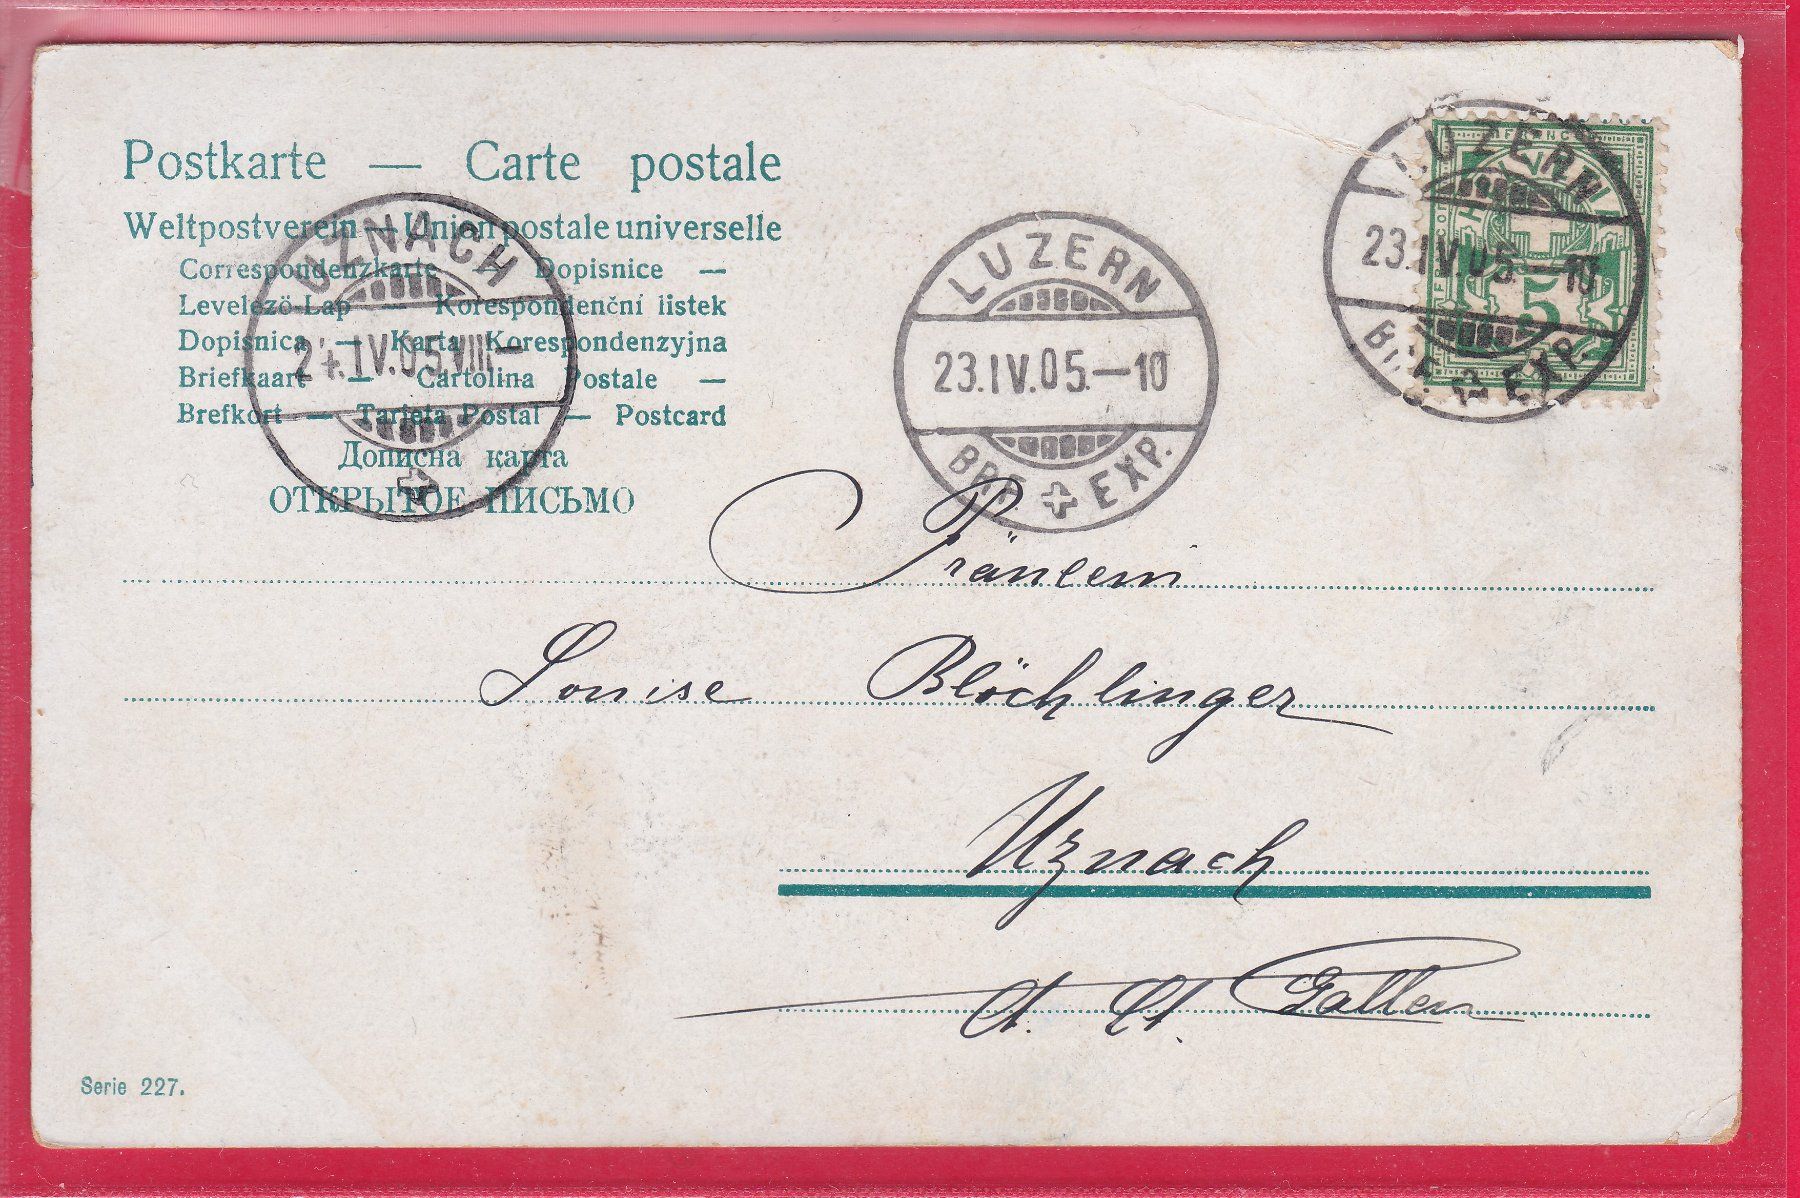 Postkarte — Carte postale
Weltpostverein — Union postale universelle
Correspondenzkarte — Dopisnice —
Levelezö-Lap — Korespondenční listek
Dopisnica — Karta Korespondenzyjna
Briefkaart — Cartolina Postale —
Brefkort — Tarjeta Postal — Postcard
Дописна карта
ОТКРЫТОЕ ПИСЬМО
UZNACH
24.IV.05.VIII—
LUZERN
23.IV.05.—10
BRF. EXP.
LUZERN
23.IV.05.—10
BRF. EXP.
FRANCO
HELVETIA
5
Fräulein
Louise Blöchlinger
Uznach
Ct. St. Gallen
Serie 227.